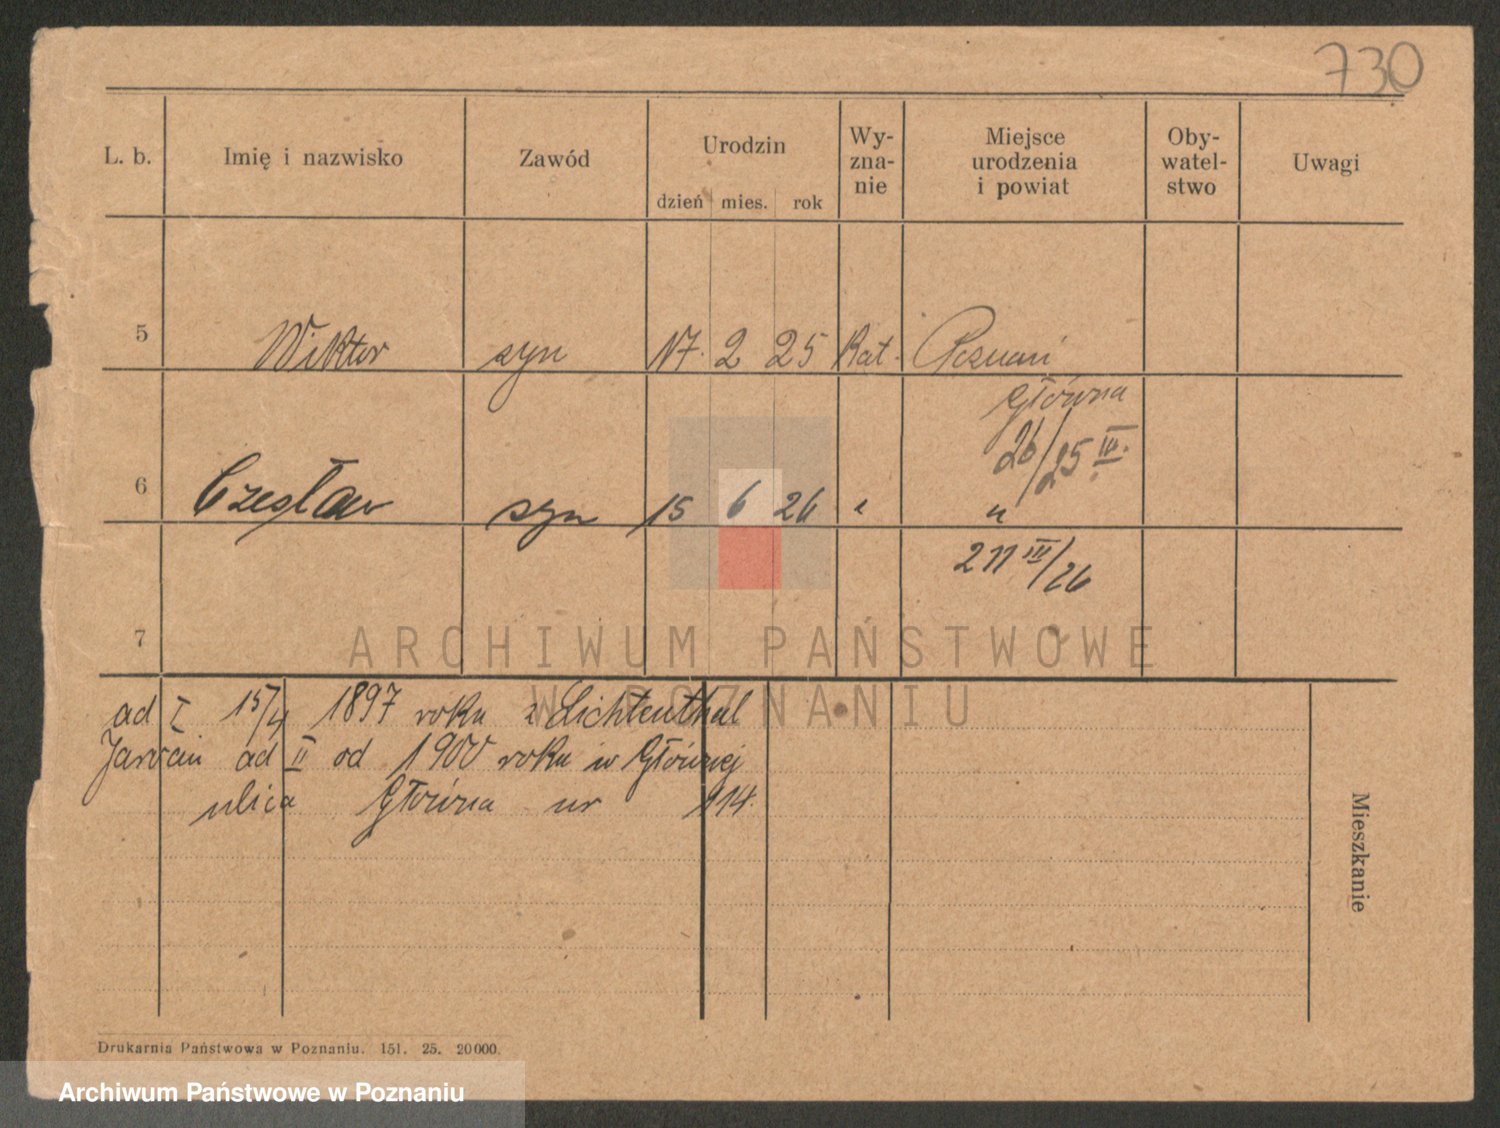 730
L. b. Imię i nazwisko Zawód Urodzin dzień mies. rok Wy-zna-nie Miejsce urodzenia i powiat Oby-watel-stwo Uwagi
5 Wiktor syn 17. 2 25 Kat. Poznań
Główna
26/25 III.
6 Czesław syn 15 6 26 " "
211 III/26
7
ARCHIWUM PAŃSTWOWE
W POZNANIU
ad I 15/4 1897 roku z Lichtenthal
ad II od 1900 roku w Głównej
ulica Główna nr 114.
Mieszkanie
Drukarnia Państwowa w Poznaniu. 151. 25. 20000.
Archiwum Państwowe w Poznaniu